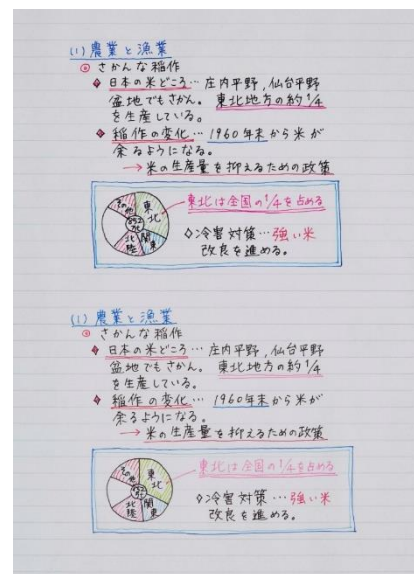 (1) 農業と漁業
◎ さかんな稲作
◆ 日本の米どころ… 庄内平野, 仙台平野
盆地でもさかん。 東北地方の約1/4
を生産している。
◆ 稲作の変化… 1960年末から米が
余るようになる。
→ 米の生産量を抑えるための政策
その他 東北
関東
北陸
東北は全国の1/4を占める
◇冷害対策…強い米
改良を進める。
(1) 農業と漁業
◎ さかんな稲作
◆ 日本の米どころ… 庄内平野, 仙台平野
盆地でもさかん。 東北地方の約1/4
を生産している。
◆ 稲作の変化… 1960年末から米が
余るようになる。
→ 米の生産量を抑えるための政策
その他 東北
関東
北陸
東北は全国の1/4を占める
◇冷害対策…強い米
改良を進める。